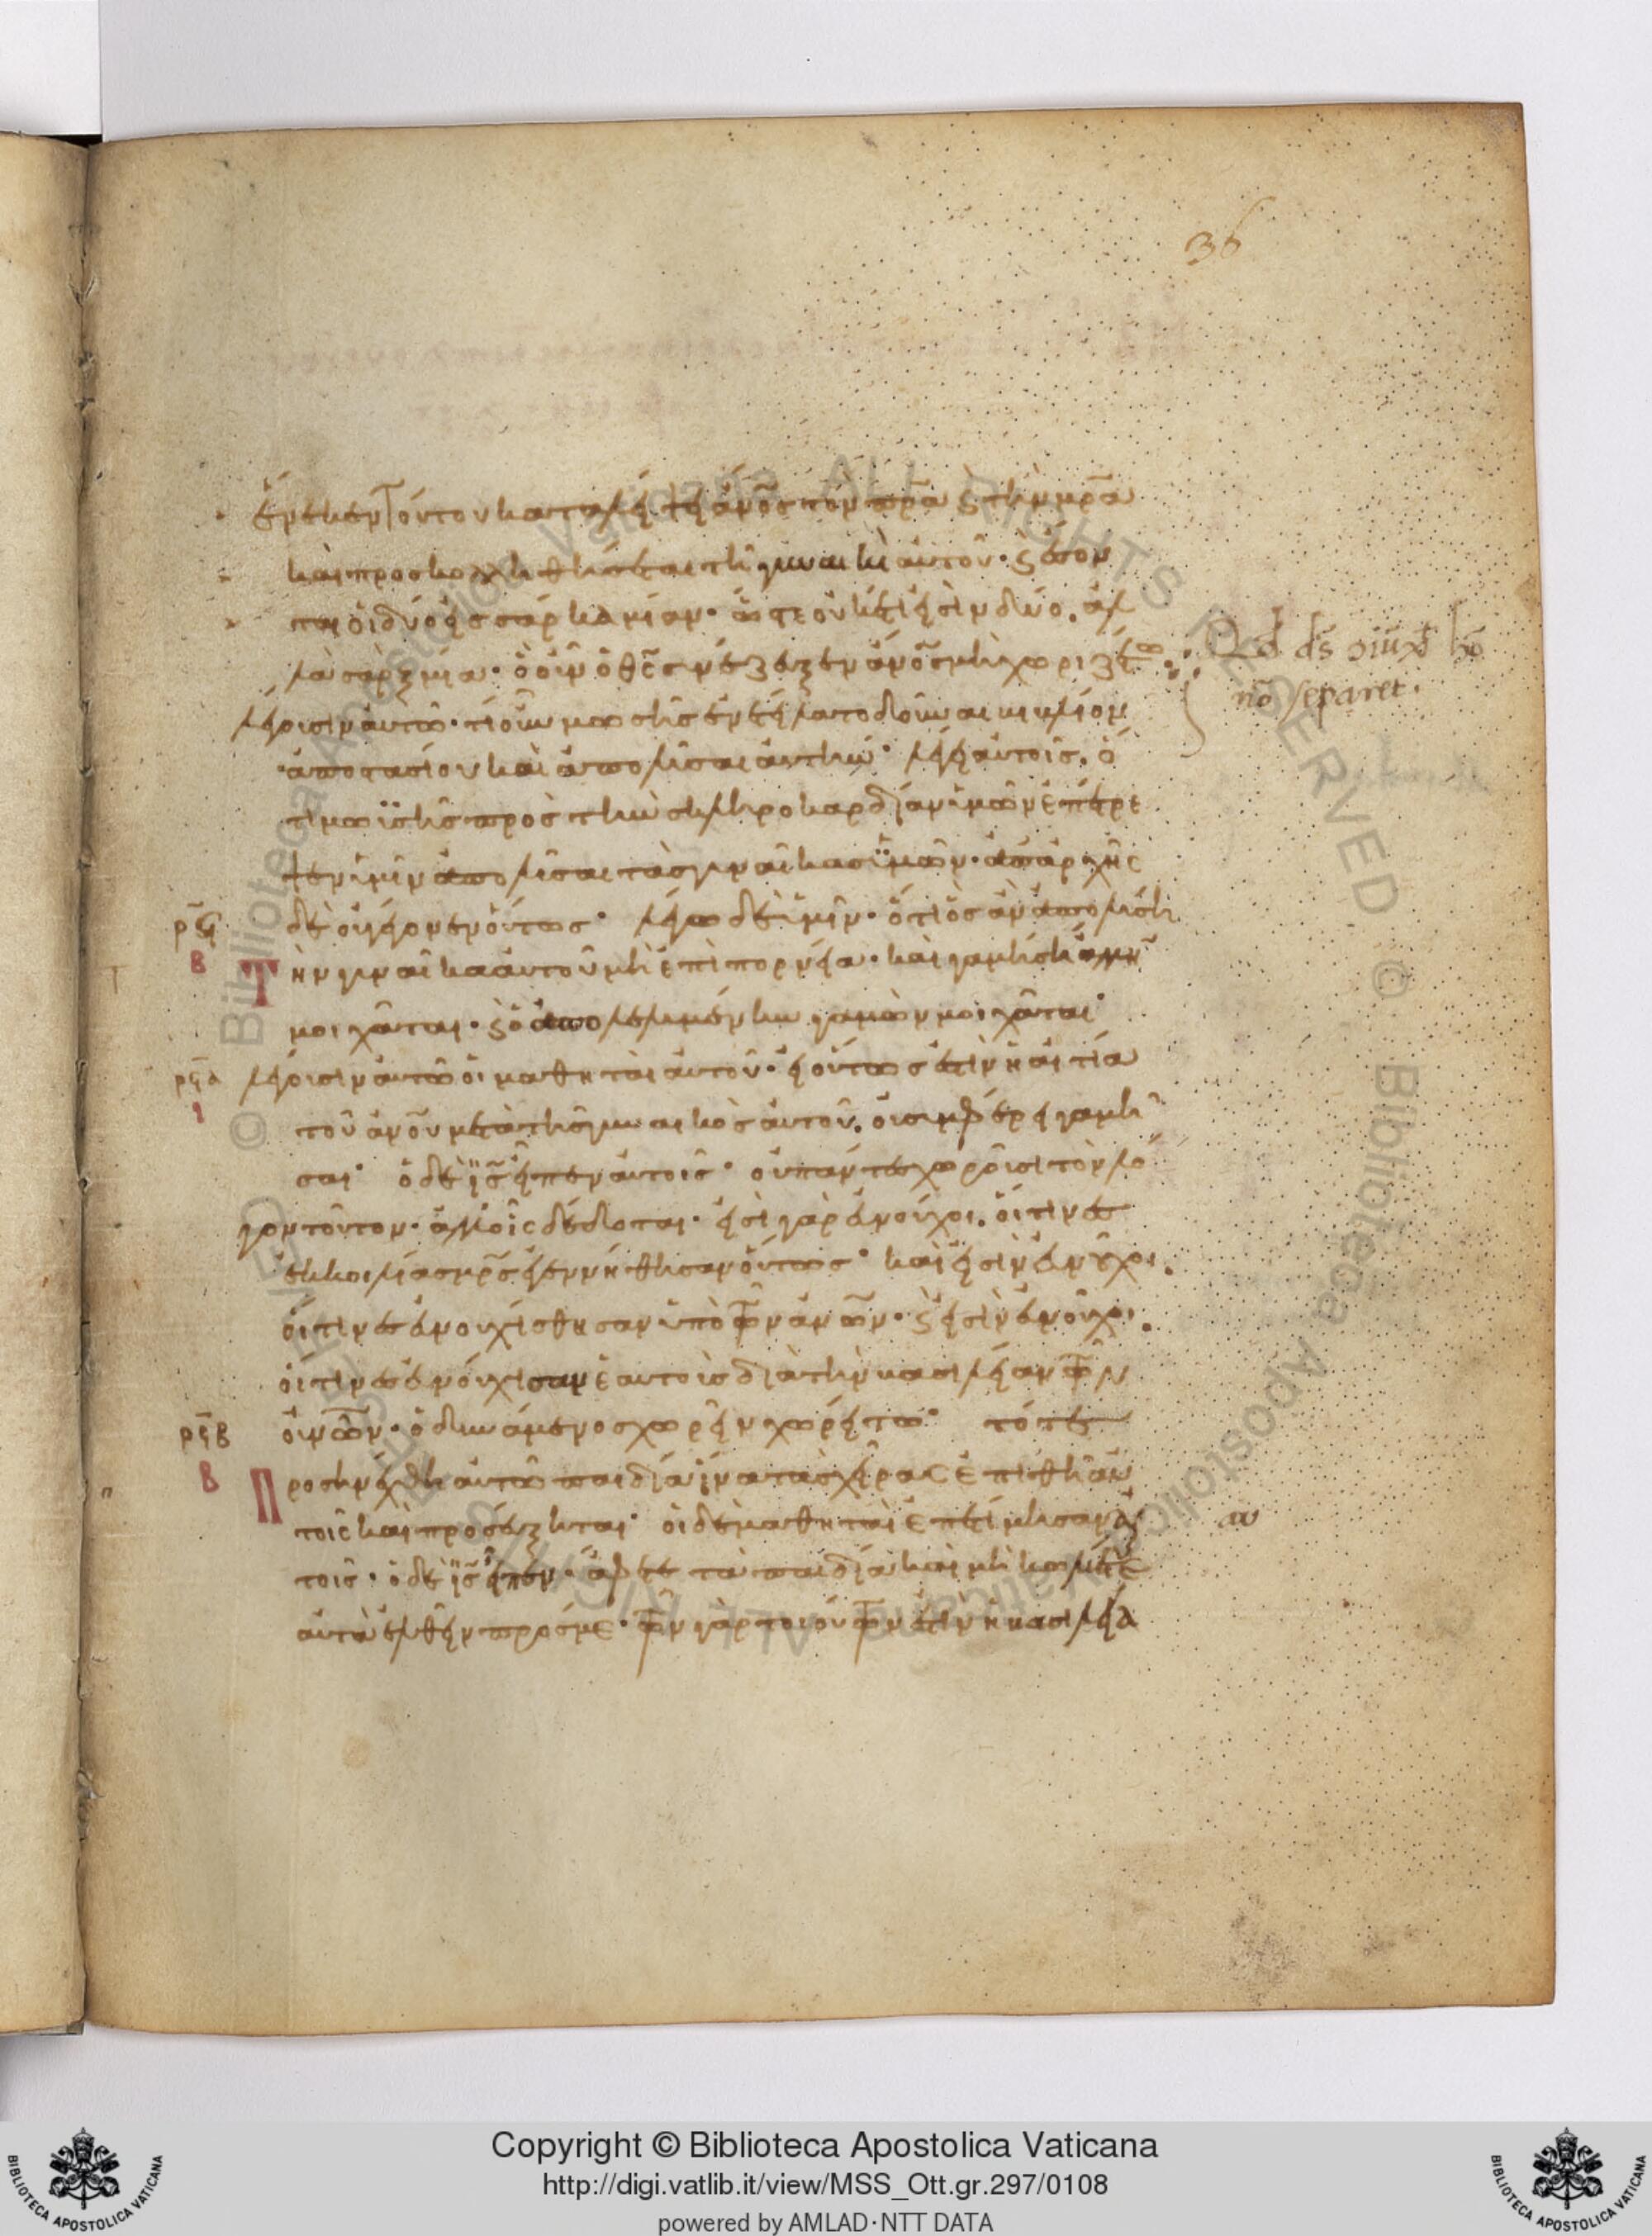 36
ἕνεκεν τούτου καταλείψει ἄνο̅ς τὸν πρ̅α ϗ τὴν μρ̅α
καὶ προσκολληθήσεται τῆ γυναικὶ αὐτοῦ· ϗ ἔσον
ται οἱ δύο εἰς σάρκα μίαν· ὥστε οὐκέτι εἰσὶν δύο. ἀλ
λὰ σὰρξ μία· ὃ οὖν ὁ θς̅ συνέζευξεν ἄνο̅ς μὴ χωριζέτω
λέγουσιν αὐτῶ· τί οὖν μωσῆς ἐνετείλατο δοῦναι βιβλίον
ἀποστασίου καὶ ἀπολῦσαι αὐτήν· λέγει αὐτοῖς. ὅ
τι μωϋσῆς πρὸς τὴν σκληροκαρδίαν ὑμῶν ἐπέτρε
ψεν ὑμῖν ἀπολῦσαι τὰς γυναῖκας ὑμῶν· ἀπαρχῆς
δὲ οὐ γέγονεν οὕτως· λέγω δὲ ὑμῖν· ὅτι ὃς ἂν ἀπολύση
Τὴν γυναῖκα αὐτοῦ μὴ ἐπὶ πορνεία· καὶ γαμήση ἄλλην
μοιχᾶται· ϗ ὁ ἀπολελυμένην γαμῶν μοιχᾶται·
λέγουσιν αὐτῶ οἱ μαθηταὶ αὐτοῦ· εἰ οὕτως ἐστὶν ἡ αἰτία
τοῦ ἀνο̅υ μετὰ τῆς γυναικὸς αὐτοῦ. οὐ συμφέρει γαμῆ
σαι· ὁ δὲ ι̅ς εἶπεν αὐτοῖς· οὐ πάντες χωροῦσι τὸν λό
γον τοῦτον· ἀλλ' οἷς δέδοται· εἰσὶ γὰρ εὐνοῦχοι. οἵτινες
ἐκ κοιλίας μρ̅ς ἐγεννήθησαν οὕτως· καὶ εἰσὶν εὐνοῦχοι.
οἵτινες εὐνουχίσθησαν ὑπὸ τῶν ἀνω̅ν· ϗ εἰσὶν εὐνοῦχοι.
οἵτινες εὐνούχισαν ἑαυτοὺς διὰ τὴν βασιλείαν τῶν
οὐνω̅ν· ὁ δυνάμενος χωρεῖν χωρείτω· τότε
Προσηνέχθη αὐτῶ παιδία ἵνα τὰς χεῖρας ἐπιθῆ αὐ
τοῖς καὶ προσεύξηται· οἱ δὲ μαθηταὶ ἐπετίμησαν αὐ
τοῖς· ὁ δὲ ι̅ς εἶπεν· ἄφετε τὰ παιδία καὶ μὴ κωλύετε
αὐτὰ ἐλθεῖν πρός με· τῶν γὰρ τοιούτων ἐστὶν ἡ βασιλεία
Qd ds̅ ɔiu̅xt ho̅
no̅ separet.
Copyright © Biblioteca Apostolica Vaticana
http://digi.vatlib.it/view/MSS_Ott.gr.297/0108
powered by AMLAD·NTT DATA
BIBLIOTECA APOSTOLICA VATICANA
BIBLIOTECA APOSTOLICA VATICANA